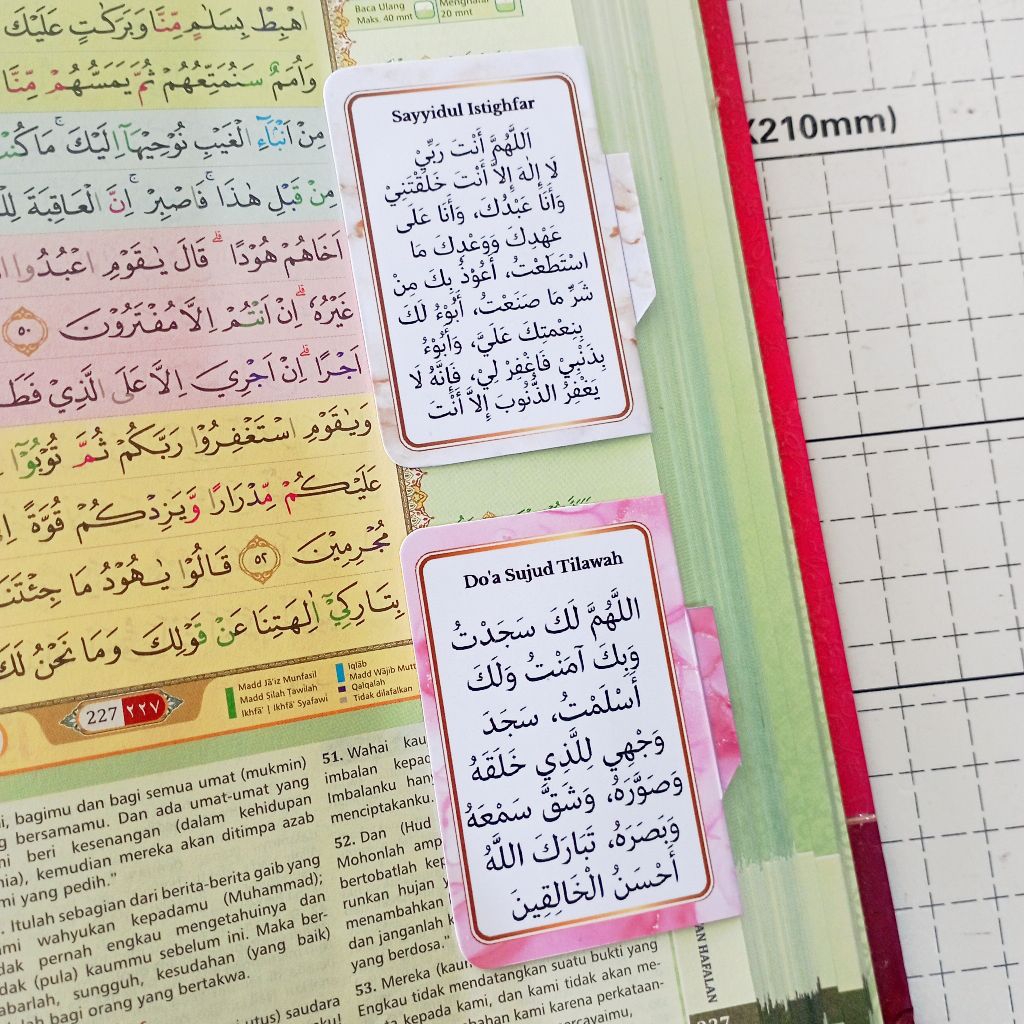 Baca Ulang
Maks. 40 mnt
Menghafal
20 mnt
اهْبِطْ بِسَلٰمٍ مِّنَّا وَبَرَكٰتٍ عَلَيْكَ
وَاُمَمٌ سَنُمَتِّعُهُمْ ثُمَّ يَمَسُّهُمْ مِّنَّا
مِنْ اَنْۢبَاۤءِ الْغَيْبِ نُوْحِيْهَآ اِلَيْكَ ۚ مَا كُنْتَ
مِنْ قَبْلِ هٰذَا ۚ فَاصْبِرْ ۚ اِنَّ الْعَاقِبَةَ
اَخَاهُمْ هُوْدًا ۗ قَالَ يٰقَوْمِ اعْبُدُوا
غَيْرُهٗ ۗ اِنْ اَنْتُمْ اِلَّا مُفْتَرُوْنَ ٥٠
اَجْرًا ۗ اِنْ اَجْرِيَ اِلَّا عَلَى الَّذِيْ
وَيٰقَوْمِ اسْتَغْفِرُوْا رَبَّكُمْ ثُمَّ تُوْبُوْٓا
عَلَيْكُمْ مِّدْرَارًا وَّيَزِدْكُمْ قُوَّةً
مُجْرِمِيْنَ ٥٢ قَالُوْا يٰهُوْدُ مَا جِئْتَنَا
بِتَارِكِيْٓ اٰلِهَتِنَا عَنْ قَوْلِكَ وَمَا نَحْنُ لَكَ
Madd Jā'iz Munfaṣil
Madd Ṣilah Ṭawilah
Ikhfā' | Ikhfā' Syafawi
Iqlāb
Madd Wājib
Qalqalah
Tidak dilafalkan
227 ٢٢٧
Sayyidul Istighfar
اَللَّهُمَّ أَنْتَ رَبِّيْ
لَا إِلٰهَ إِلاَّ أَنْتَ خَلَقْتَنِيْ
وَأَنَا عَبْدُكَ، وَأَنَا عَلَى
عَهْدِكَ وَوَعْدِكَ مَا
اسْتَطَعْتُ، أَعُوْذُ بِكَ مِنْ
شَرِّ مَا صَنَعْتُ، أَبُوْءُ لَكَ
بِنِعْمَتِكَ عَلَيَّ، وَأَبُوْءُ
بِذَنْبِيْ فَاغْفِرْ لِيْ، فَإِنَّهُ لَا
يَغْفِرُ الذُّنُوبَ إِلاَّ أَنْتَ
Do'a Sujud Tilawah
اللَّهُمَّ لَكَ سَجَدْتُ
وَبِكَ آمَنْتُ وَلَكَ
أَسْلَمْتُ، سَجَدَ
وَجْهِي لِلَّذِي خَلَقَهُ
وَصَوَّرَهُ، وَشَقَّ سَمْعَهُ
وَبَصَرَهُ، تَبَارَكَ اللَّهُ
أَحْسَنُ الْخَالِقِينَ
bagimu dan bagi semua umat (mukmin)
bersamamu. Dan ada umat-umat yang
beri kesenangan (dalam kehidupan
kemudian mereka akan ditimpa azab
yang pedih."
Itulah sebagian dari berita-berita gaib yang
wahyukan kepadamu (Muhammad);
pernah engkau mengetahuinya dan
(pula) kaummu sebelum ini. Maka ber-
sungguh, kesudahan (yang baik)
bagi orang yang bertakwa.
saudara
51. Wahai
imbalan
Imbalanku
menciptakanku.
52. Dan (Hud
Mohonlah
bertobatlah
runkan hujan
menambahkan
dan janganlah
yang berdosa."
53. Mereka
Engkau tidak mendatangkan suatu bukti yang
kepada kami, dan kami tidak akan me-
kami karena perkataan-
HAFALAN
227
X210mm)